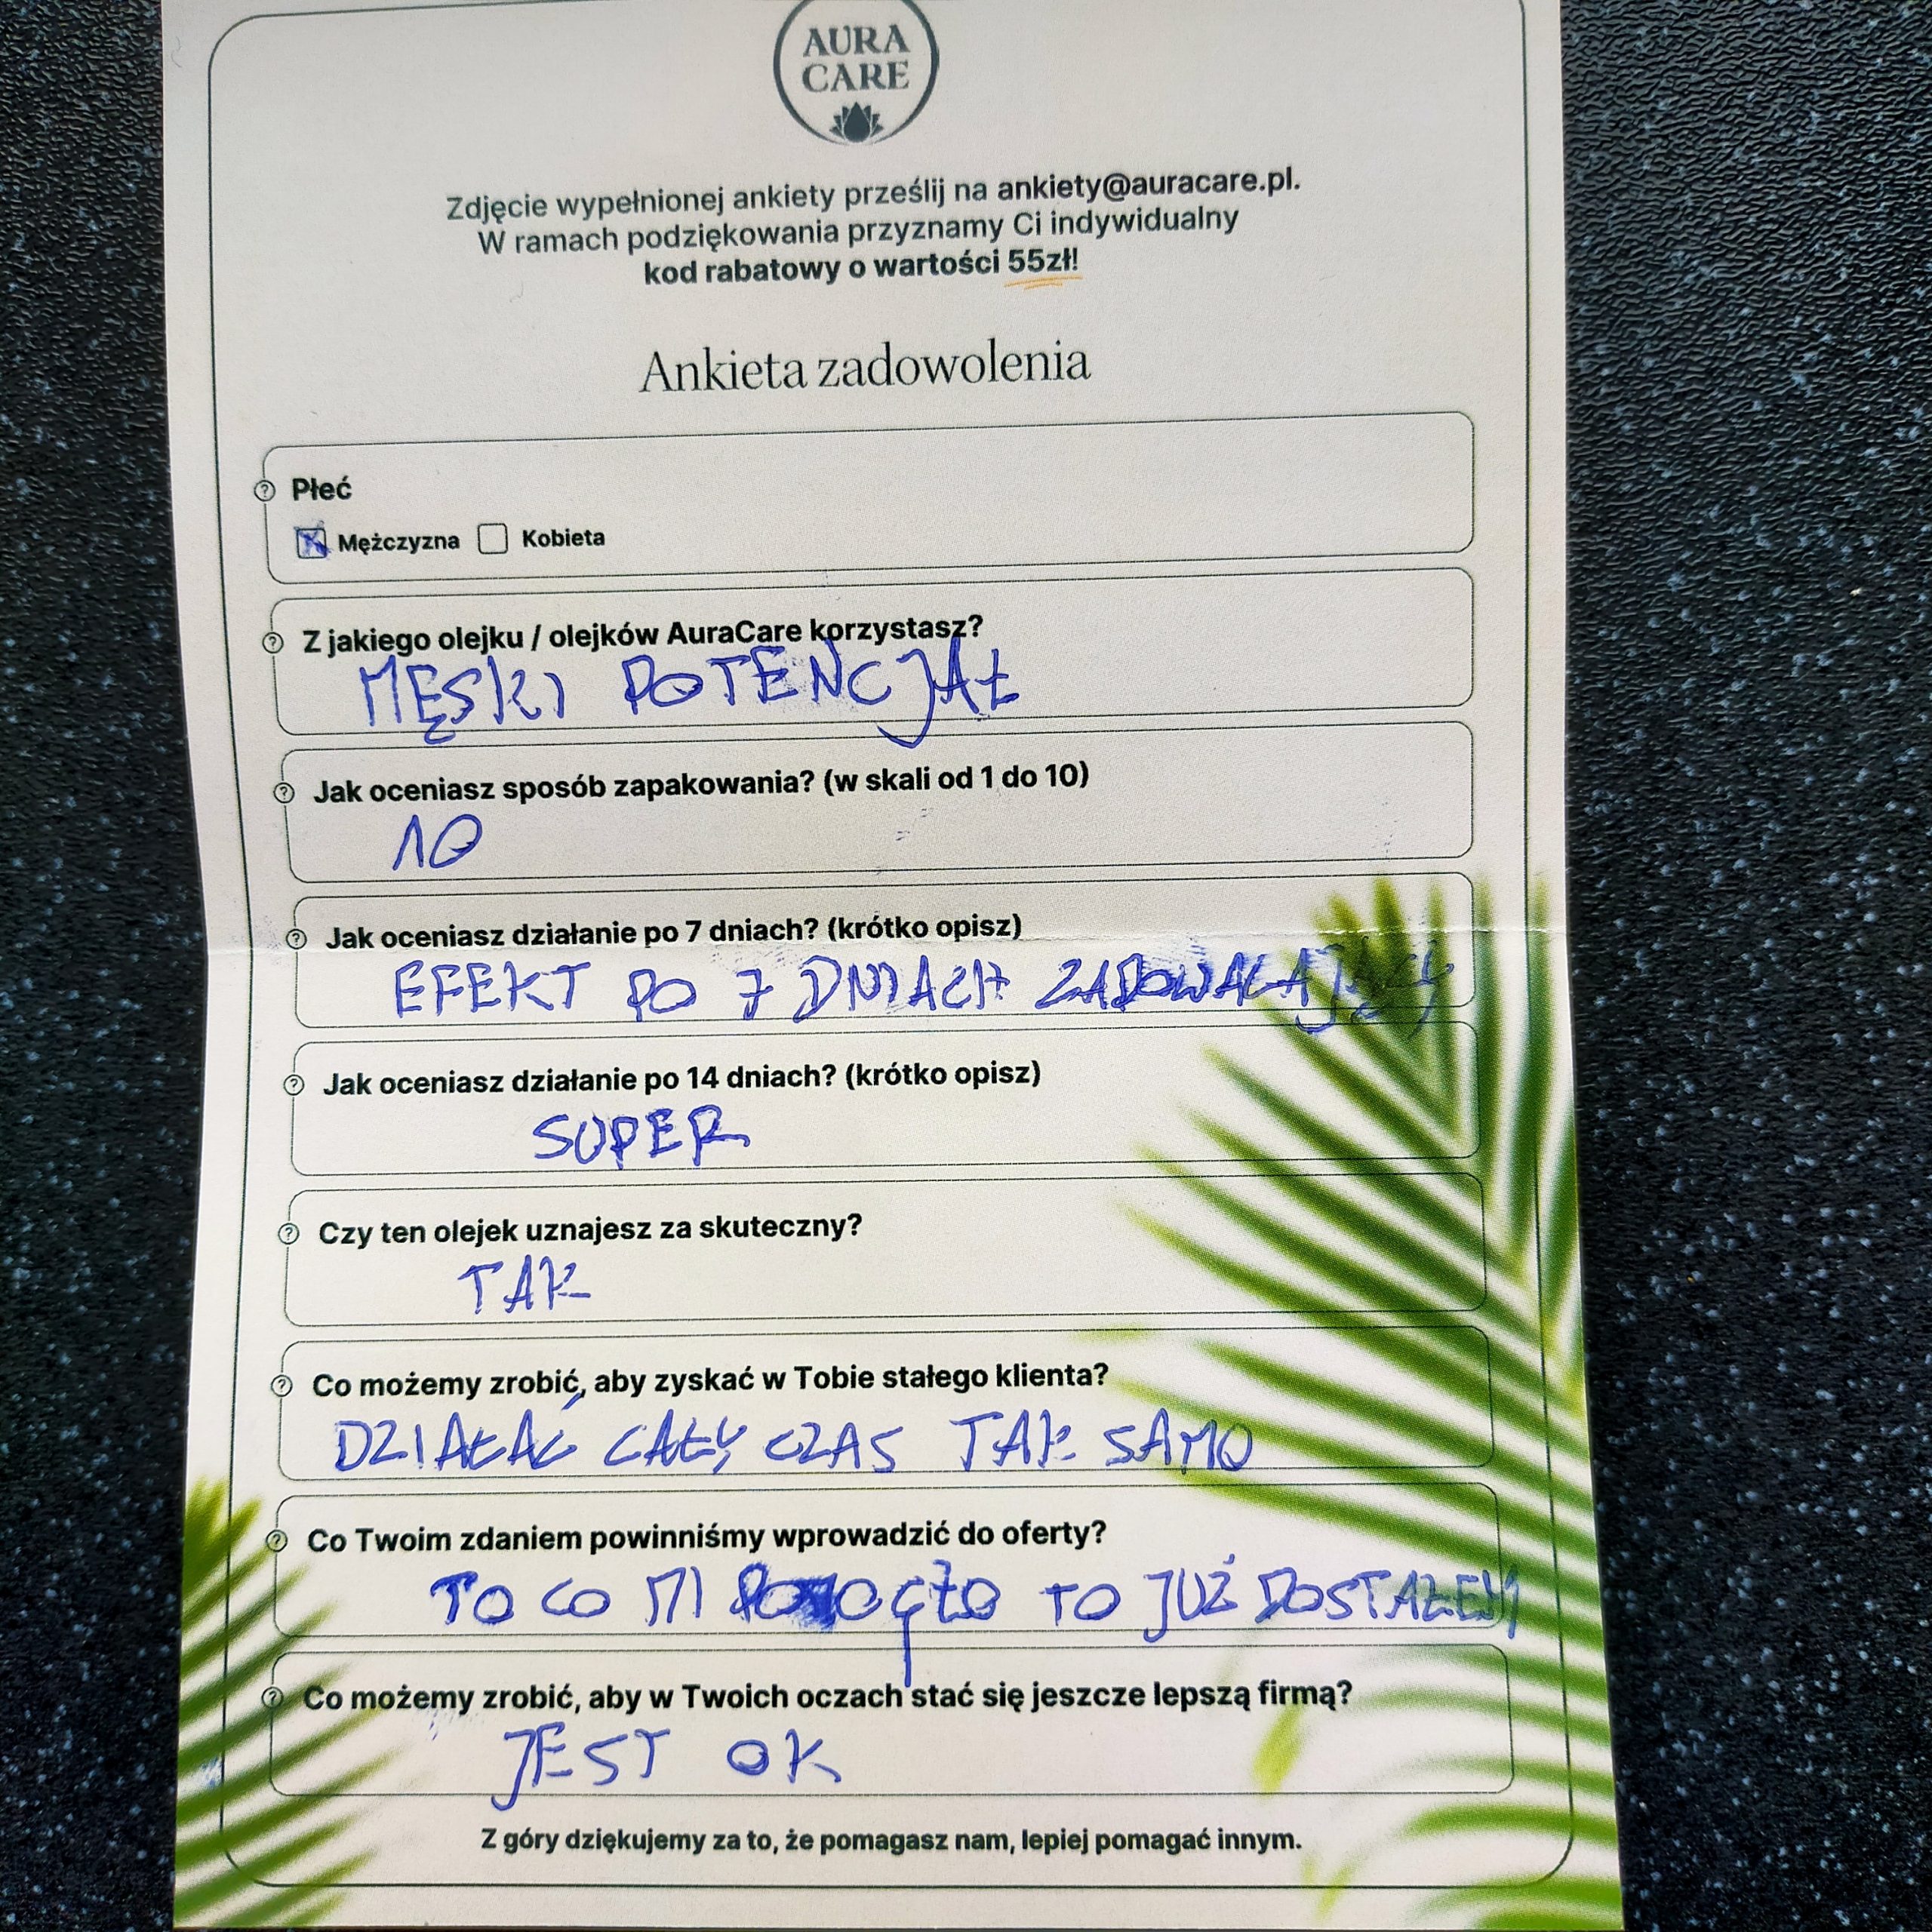 AURA
CARE
Zdjęcie wypełnionej ankiety prześlij na ankiety@auracare.pl.
W ramach podziękowania przyznamy Ci indywidualny
kod rabatowy o wartości 55zł!
Ankieta zadowolenia
Płeć
Mężczyzna Kobieta
Z jakiego olejku / olejków AuraCare korzystasz?
MĘSKI POTENCJAŁ
Jak oceniasz sposób zapakowania? (w skali od 1 do 10)
10
Jak oceniasz działanie po 7 dniach? (krótko opisz)
EFEKT PO 7 DNIACH ZADOWALAJĄCY
Jak oceniasz działanie po 14 dniach? (krótko opisz)
SUPER
Czy ten olejek uznajesz za skuteczny?
TAK
Co możemy zrobić, aby zyskać w Tobie stałego klienta?
DZIAŁAĆ CAŁY CZAS TAK SAMO
Co Twoim zdaniem powinniśmy wprowadzić do oferty?
TO CO MI TO JUŻ DOSTAŁEM
Co możemy zrobić, aby w Twoich oczach stać się jeszcze lepszą firmą?
JEST OK
Z góry dziękujemy za to, że pomagasz nam, lepiej pomagać innym.